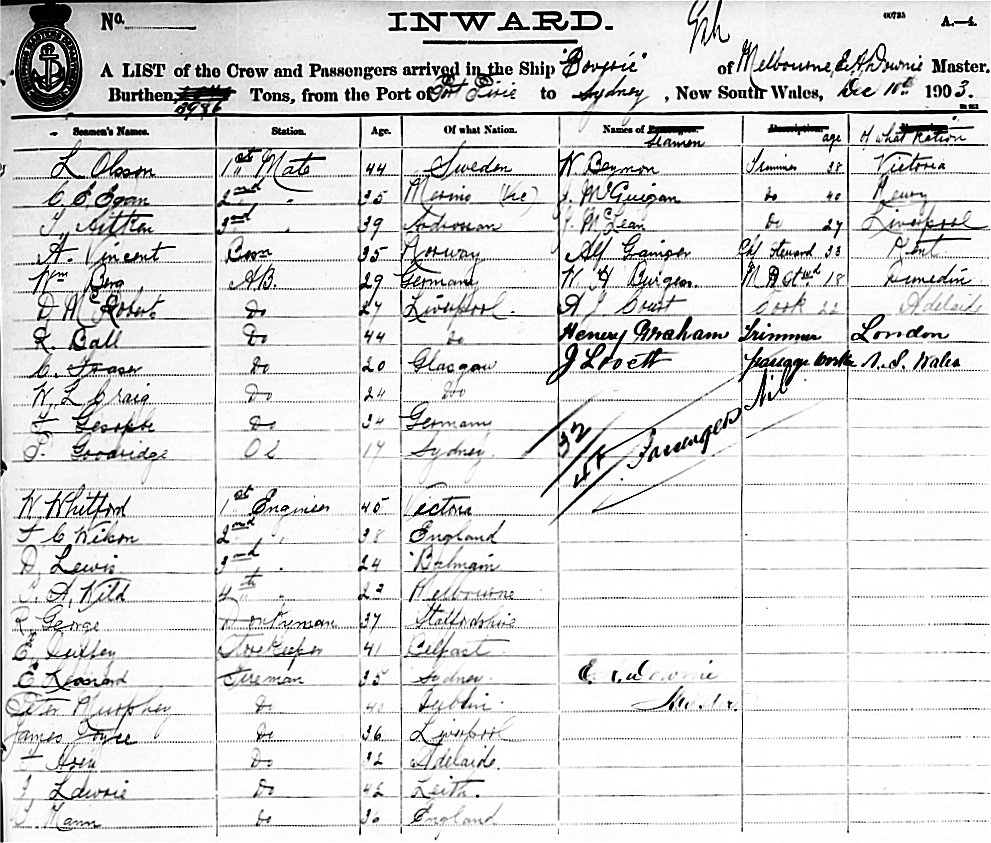 No.
INWARD.
00735
A.—4.
A LIST of the Crew and Passengers arrived in the Ship of Melbourne, Downie Master.
Burthen 3986 Tons, from the Port of Port Pirie to Sydney, New South Wales, Dec 10th 1903.
Seamen's Names. Station. Age. Of what Nation. Names of Seamen age Of what Nation
L Olsson 1st Mate 44 Sweden W. Beynon Trimmer 38 Victoria
C. E. Egan 2nd " 35 (Vic) J. McGuigan Do 40 Newry
Aitken 3rd " 39 J. McLean Do 27 Liverpool
A. Vincent Bosn 35 Norway Alf Grainger Chf Steward 33 Kent
Wm Berg A.B. 29 Germany W. H Burgess 18 Dunedin
D. McRoberts Do 27 Liverpool. A J Court Cook 22 Adelaide
R. Ball Do 44 Do Henery Graham Trimmer London
C. Fraser Do 20 Glasgow J Lovett passage worker N. S. Wales
W. L Craig Do 24 Do
Do 34 Germany
Goodridge O S 17 Sydney.
32
Passengers Nil
W Whitford 1st Engineer 45 Victoria
F C Wilson 2nd " 38 England
D. Lewis 3rd " 24 Balmain
A. Wild 4th " 23 Melbourne
R. George Donkeyman 37 Staffordshire
E. Storekeeper 41 Belfast
E Leonard Fireman 35 Sydney.
Peter Murphey Do 40 Dublin.
James Joyce Do 36 Liverpool
Do 32 Adelaide.
Lawrie Do 42 Leith.
Mann Do 36 England
Downie
Master.